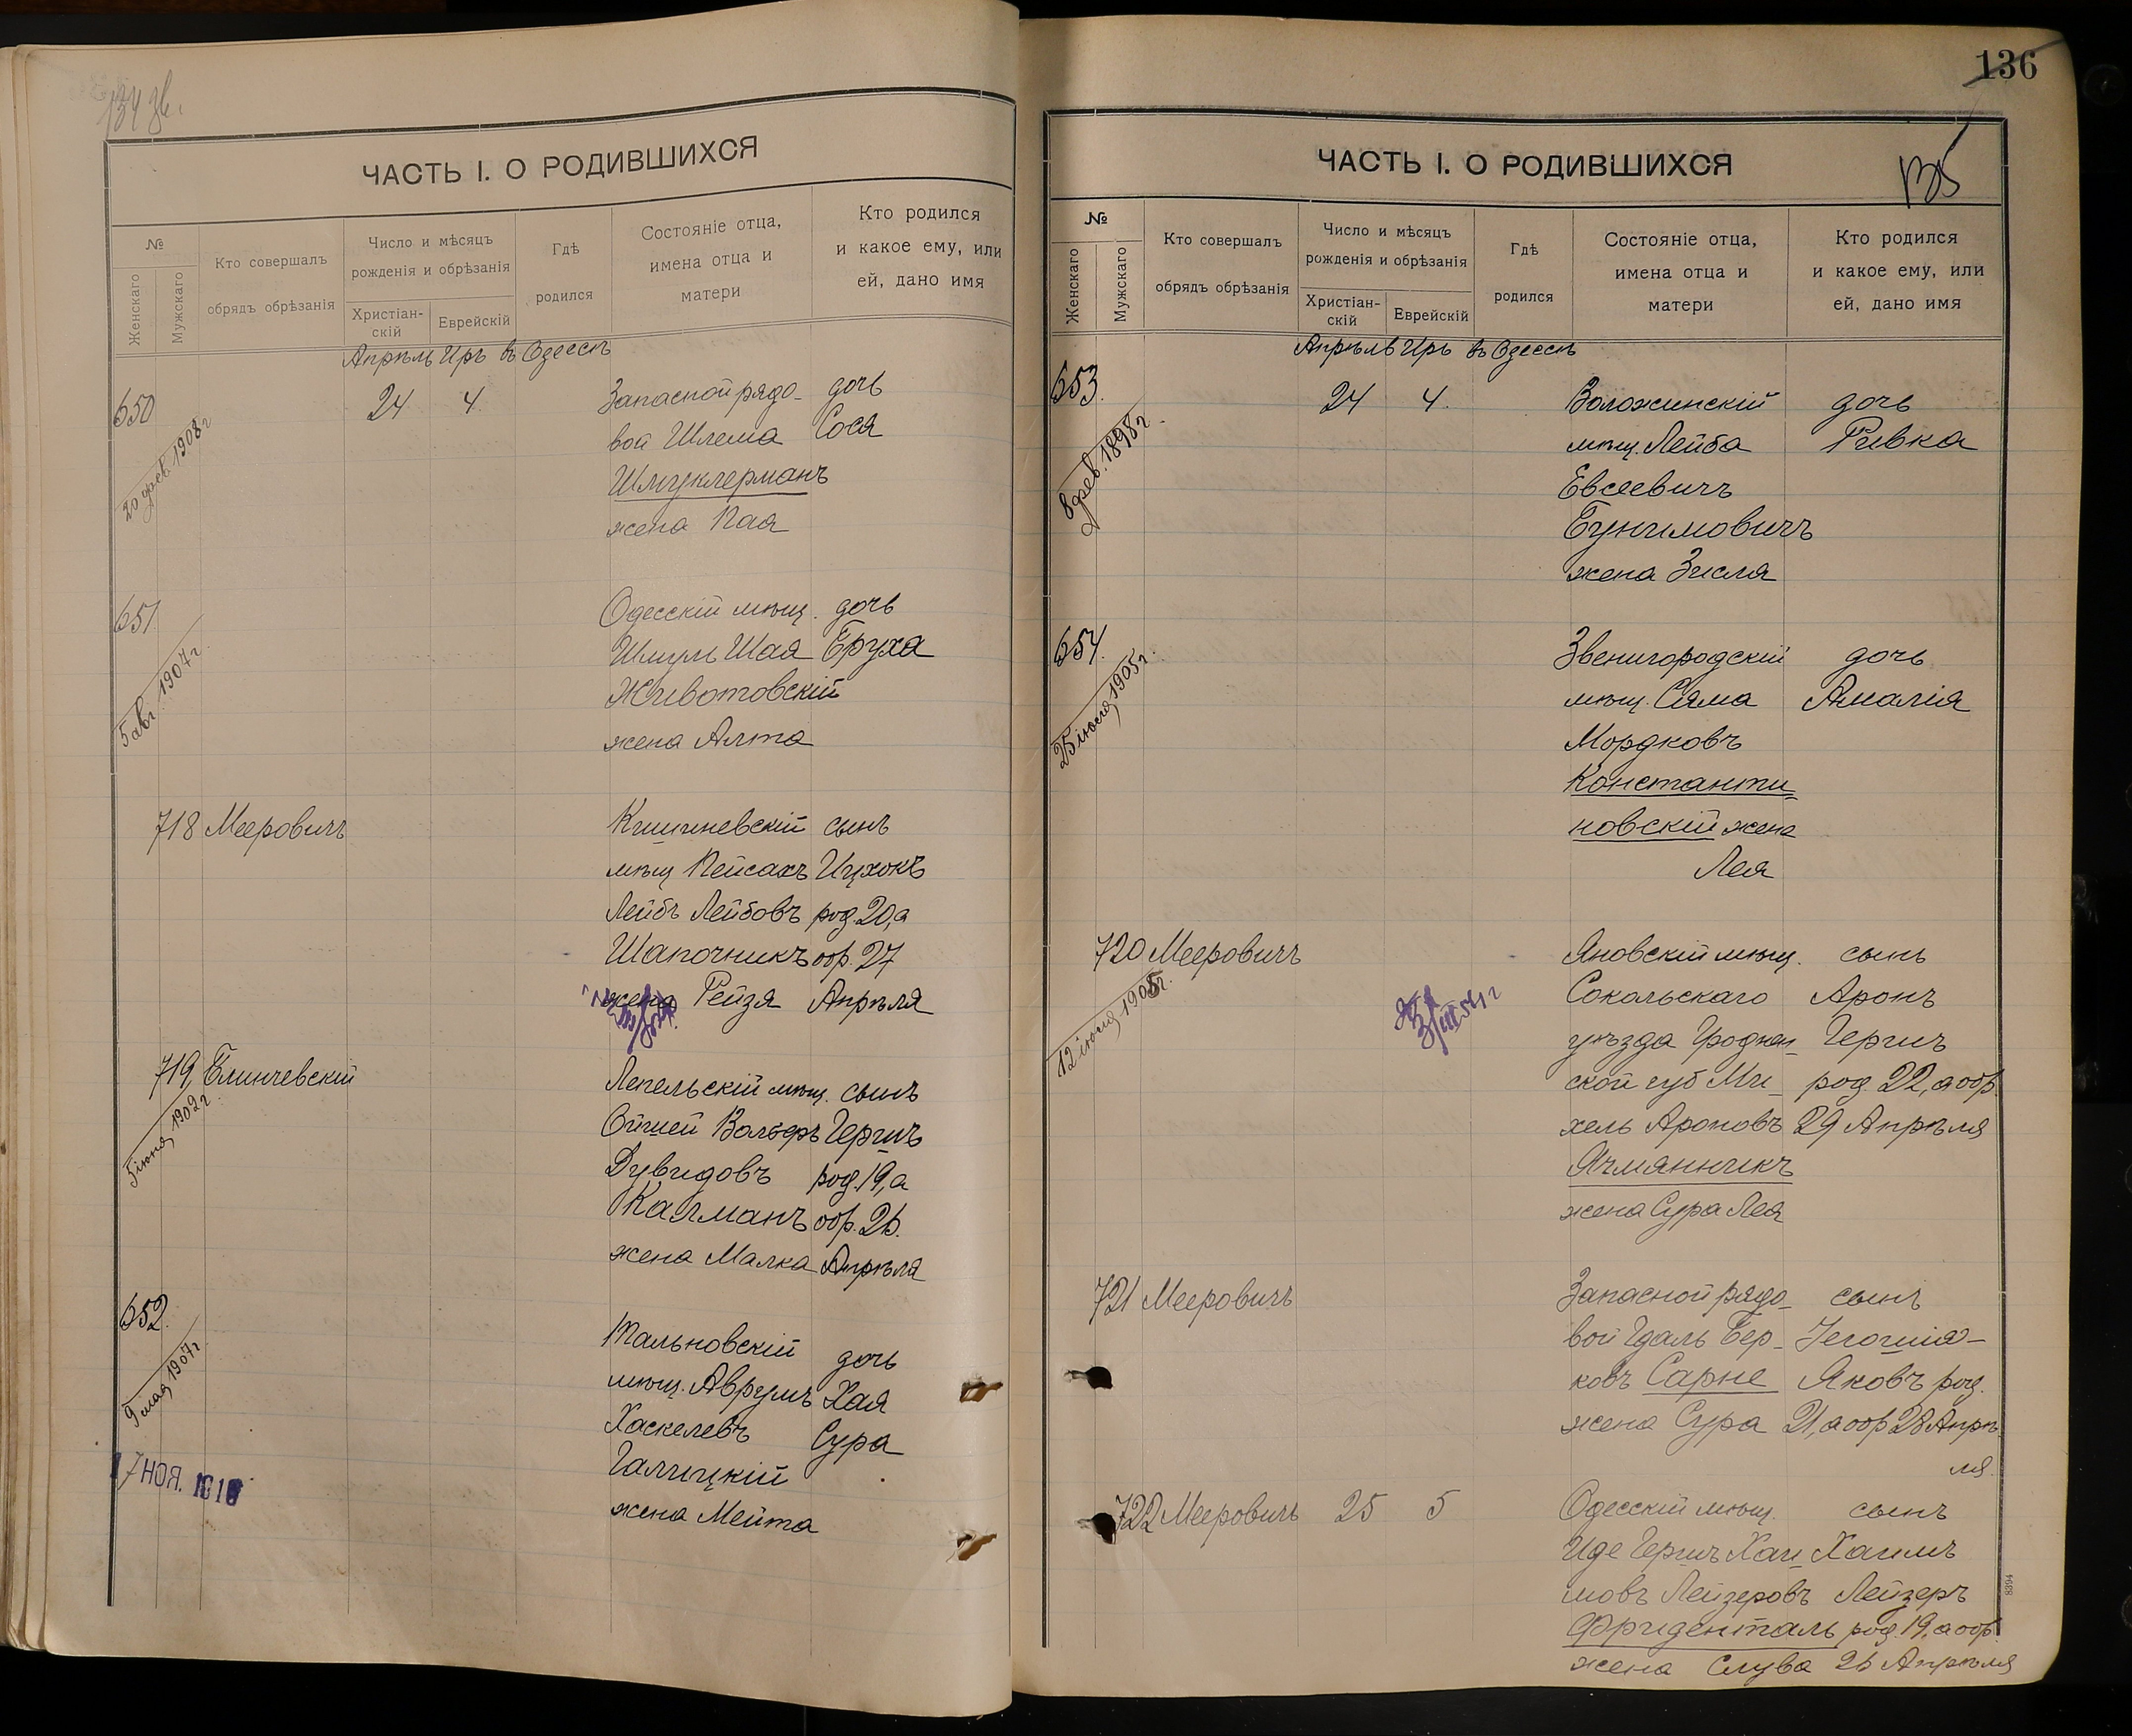 134 зв.
ЧАСТЬ I. О РОДИВШИХСЯ
№
Женскаго
Мужскаго
Кто совершалъ
обрядъ обрѣзанія
Число и мѣсяцъ
рожденія и обрѣзанія
Христіан-
скій
Еврейскій
Гдѣ
родился
Состояніе отца,
имена отца и
матери
Кто родился
и какое ему, или
ей, дано имя
Апрѣль Иръ въ Одессѣ
650 24 4 Запасной рядо- дочь
20 фев. 1908 г
вой Шлема Сося
Шмуклерманъ
жена Пая
651 Одесскій мѣщ. дочь
5 авг. 1907 г.
Шмуль Шая Бруха
Животовскій
жена Алта
718 Мееровичъ Кишиневскій сынъ
мѣщ Пейсахъ Ицхокъ
Лейбъ Лейбовъ род. 20, а
Шапочникъ обр. 27
жена Рейзя Апрѣля
719 Блинчевскій Лепельскій мѣщ. сынъ
5 июня 1902 г.
Ойшей Вольфъ Гершъ
Дувидовъ род. 19, а
Калманъ обр. 26.
жена Малка Апрѣля
652. Тальновскій дочь
9 мая 1907 г
мѣщ. Аврумъ Хая
Хаскелевъ Сура
Галицкій
жена Мейта
17 НОЯ. 191
136
135
ЧАСТЬ I. О РОДИВШИХСЯ
№
Женскаго
Мужскаго
Кто совершалъ
обрядъ обрѣзанія
Число и мѣсяцъ
рожденія и обрѣзанія
Христіан-
скій
Еврейскій
Гдѣ
родился
Состояніе отца,
имена отца и
матери
Кто родился
и какое ему, или
ей, дано имя
Апрѣль Иръ въ Одессѣ
653. 24 4. Воложинскій дочь
8 фев. 1898 г.
мѣщ. Лейба Ривка
Евсеевичъ
Бунимовичъ
жена Зисля
654. Звенигородскій дочь
25 1905 г.
мѣщ. Сяма Амалія
Мордковъ
Константи-
новскій жена
Лея
720 Мееровичъ Яновскій мѣщ. сынъ
12 1905 г.
Сокольскаго Аронъ
3/III 54 г
уѣзда Гроднен- Гершъ
ской губ Ми- род. 22, а обр.
хель Ароновъ 29 Апрѣля
Ячмянникъ
жена Сура Лея
721 Мееровичъ Запасной рядо- сынъ
вой Гдаль Бер- Іегошія-
ковъ Сарне Яковъ род.
жена Сура 21, а обр 28 Апрѣ-
ля.
722 Мееровичъ 25 5 Одесскій мѣщ. сынъ
Иде Гершъ Хаи- Хаимъ
мовъ Лейзеровъ Лейзеръ
Фриденталь род. 19, а обр.
жена Слува 26 Апрѣля
8394